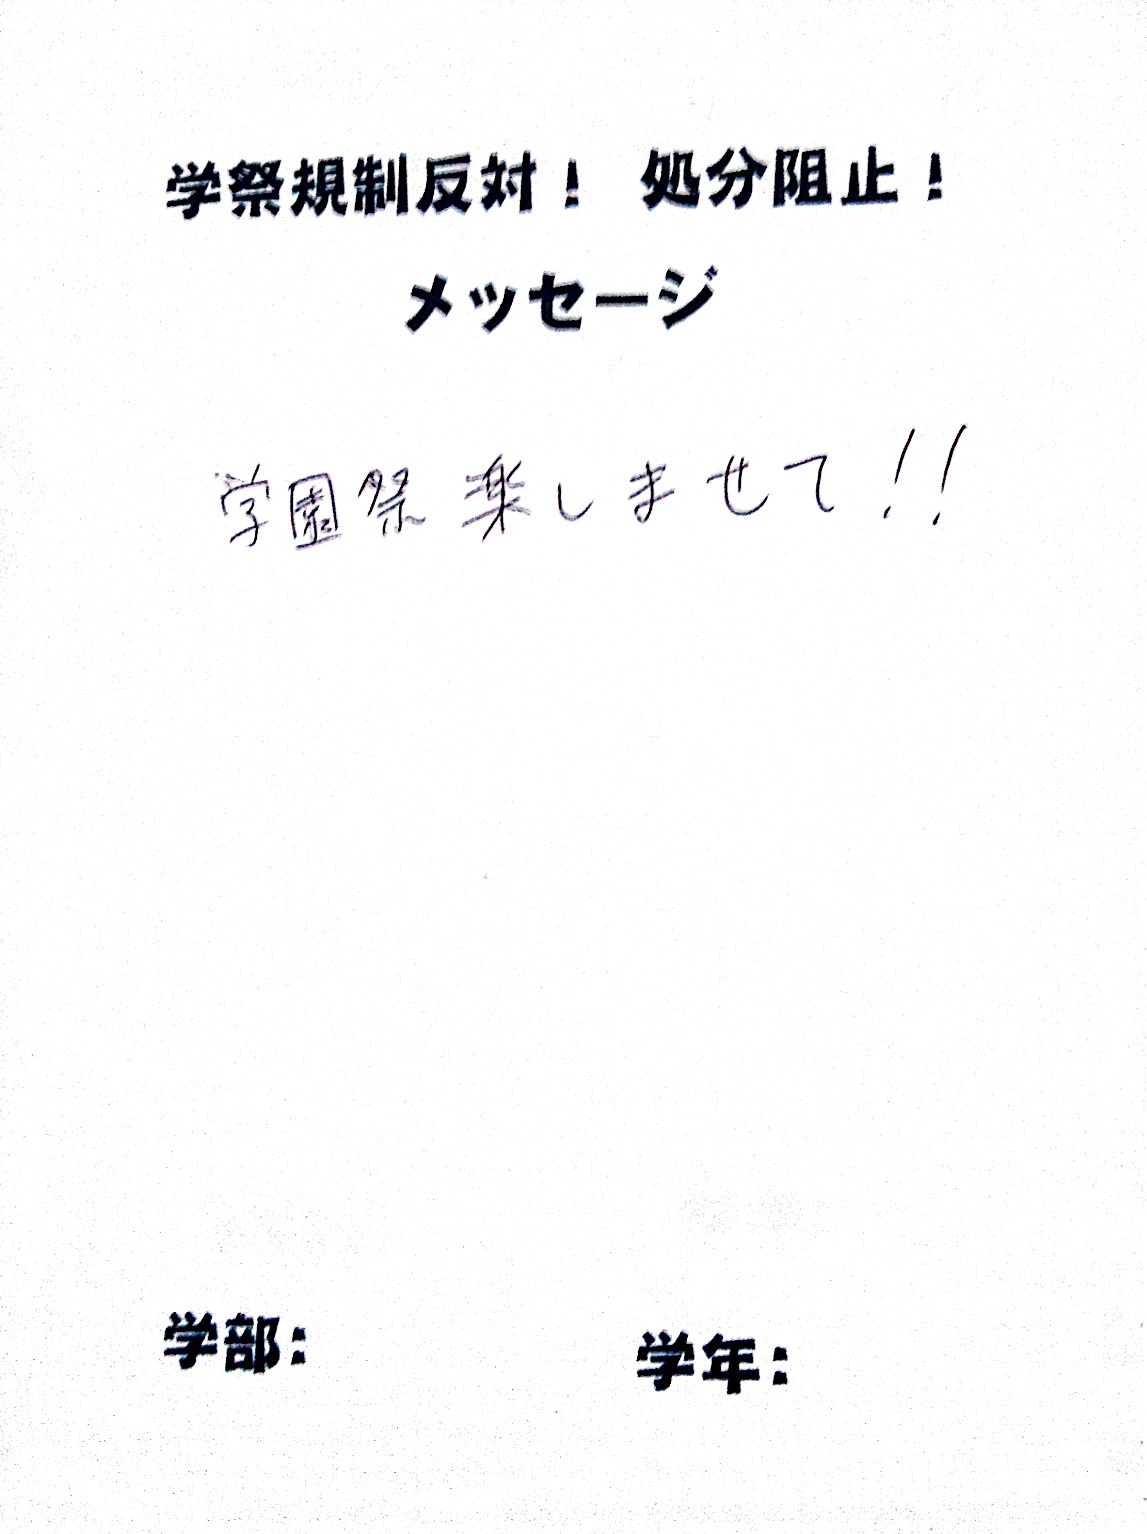 学祭規制反対！ 処分阻止！
メッセージ
学園祭 楽しませて!!
学部: 学年: